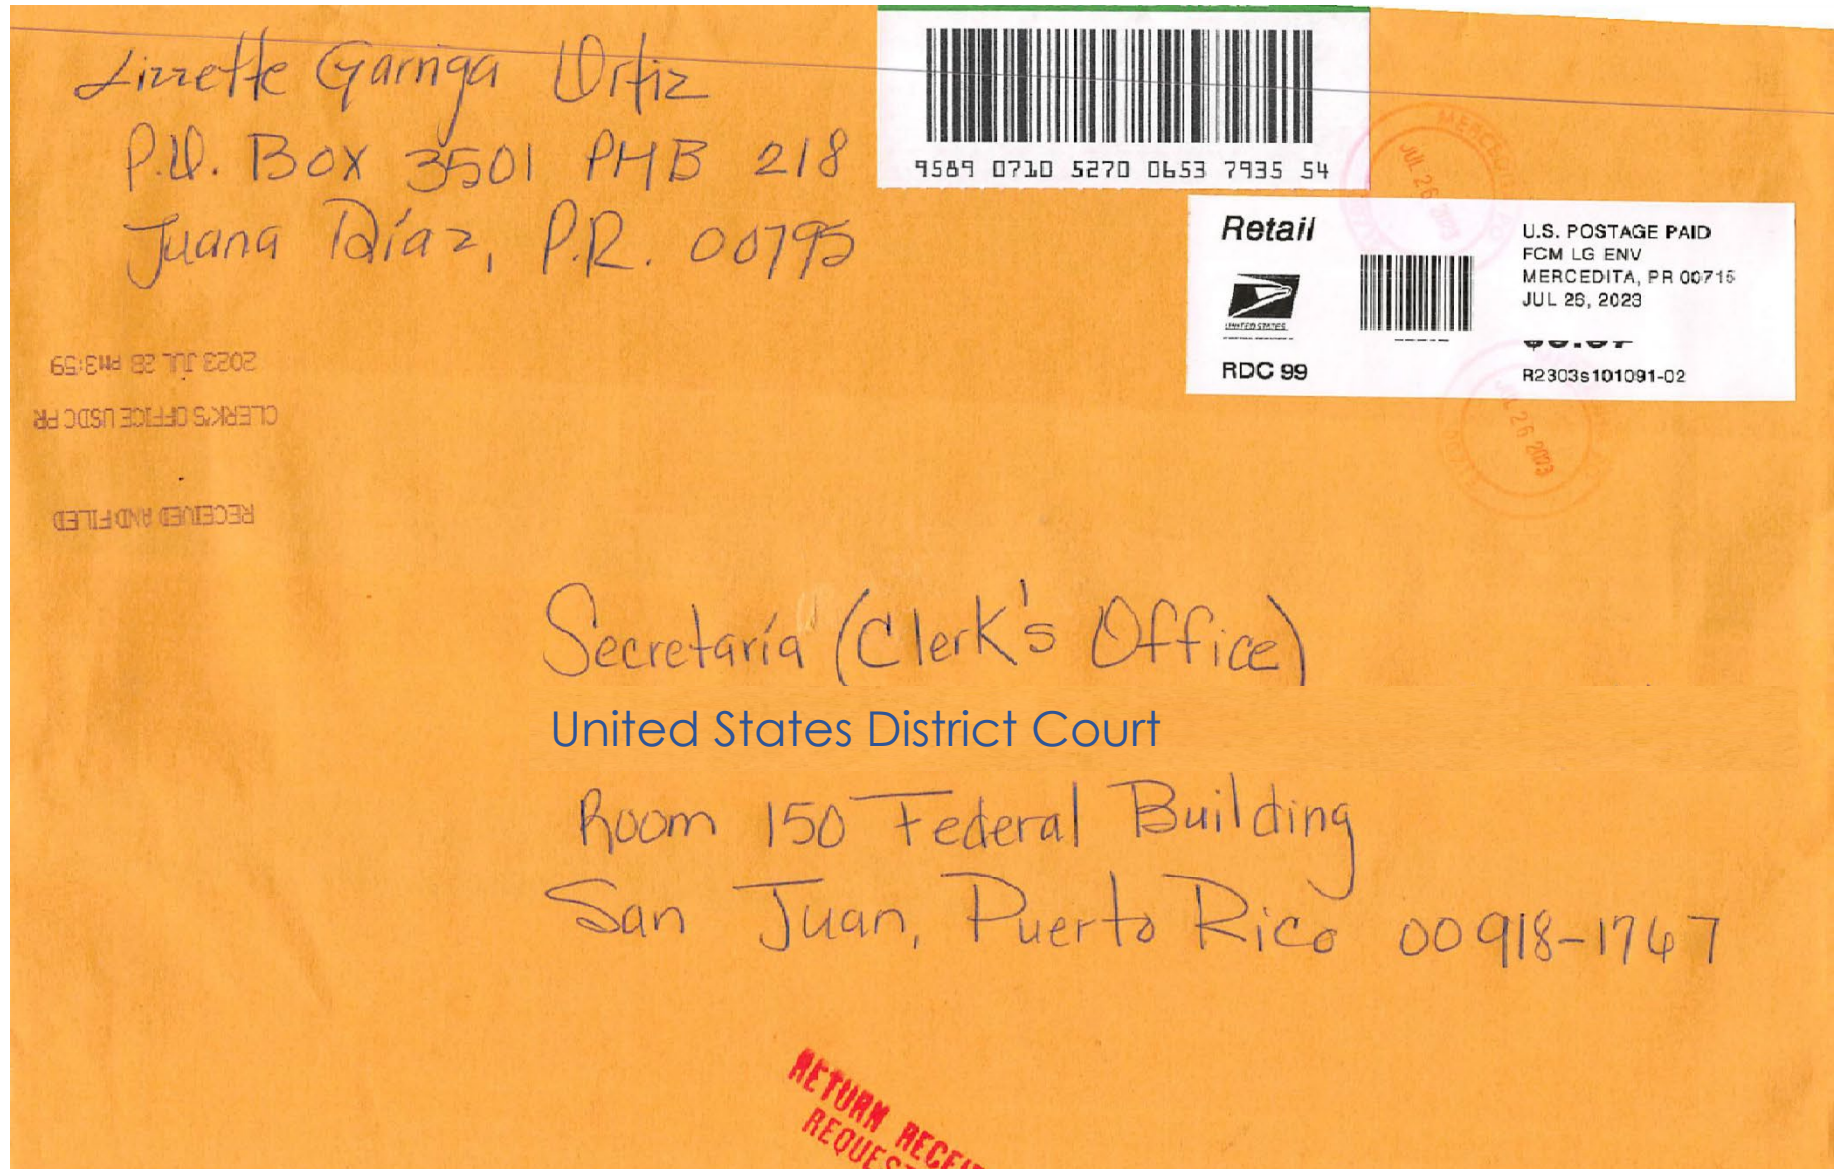 Lizzette Garriga Ortiz
P.O. Box 3501 PMB 218
Juana Díaz, P.R. 00795
9589 0710 5270 0653 7935 54
Retail
UNITED STATES
RDC 99
U.S. POSTAGE PAID
FCM LG ENV
MERCEDITA, PR 00715
JUL 26, 2023
R2303s101091-02
JUL 26 2023
JUL 26 2023
2023 JUL 28 PM3:59
CLERK'S OFFICE USDC PR
RECEIVED AND FILED
Secretaría (Clerk's Office)
United States District Court
Room 150 Federal Building
San Juan, Puerto Rico 00918-1767
RETURN RECEI
REQUEST